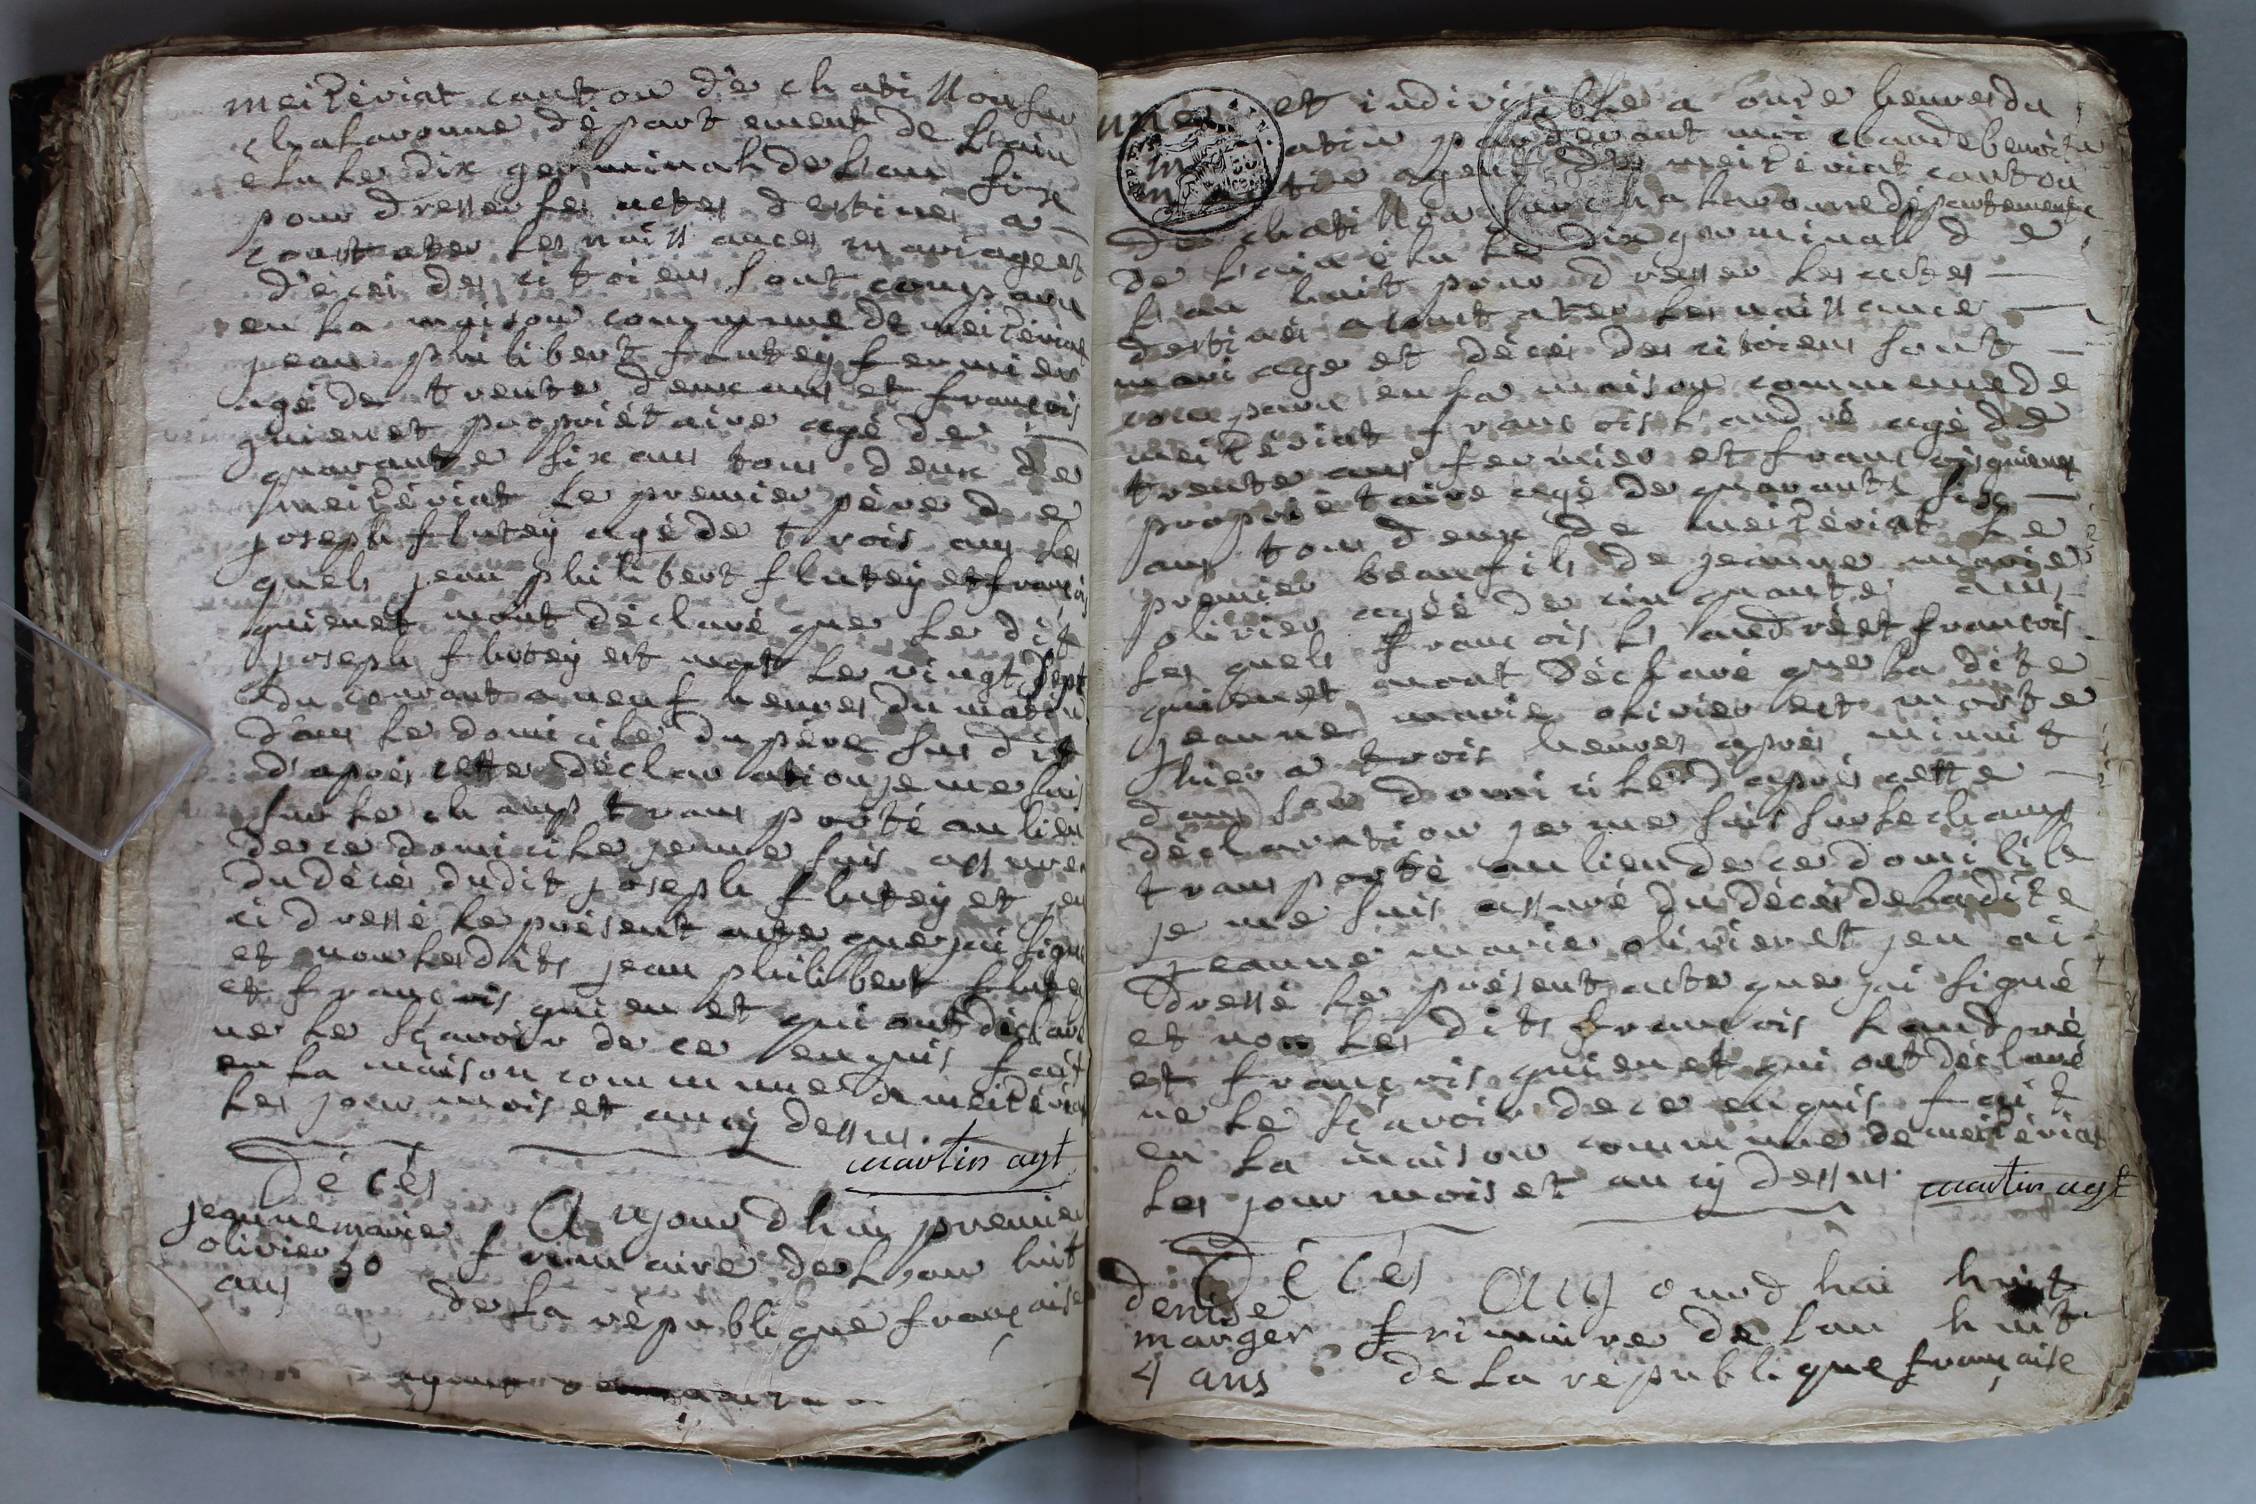 meitèriat canton de chatillon sur
chalaronne département de Lain
elu le dix germinal de Lan sixe
pour dresser les actes destines a
constater les naissances mariage et
déces des citoiens sont comparu
en la maison commune de meitèriat
jean philibert flutey fermier
agé de trente deux ans et françois
quienet propriétaire agé de
quarante six ans tous deux de
meitèriat le premier père de
joseph flutey agé de trois ans les
quels jean philibert flutey et françois
quienet mont déclaré que le dit
joseph flutey est mort le vingt sept
du courant a neuf heures du matin
dans le domicile du père sus dit
d'aprés cette déclaration je me suis
sur le champ transporté au lieu
de ce domicile je me suis assurer
du décés dudit joseph flutey et jen
ai dressé le présent acte que jai signé
et non lesdits jean philibert flutey
et françois quienet qui ont déclaré
ne le sçavoir de ce enquis fait
en la maison commune de meitèriat
les jour mois et an cy dessus.
martin agt
Décés
jeanne marie
olivier 50
ans
Aujourdhui premier
frimaire de Lan huit
de la république française
une et indivisible a onze heures du
matin pardevant moi claude benoit
martin agent de meitèriat canton
de chatillon sur chalaronne département
de Lain élu le dix germinal de
Lan huit pour dresser les actes
destinés a constater les naissance
mariage et décés des citoiens sont
comparu en la maison commune de
meitèriat françois Landré agé de
trente ans fermier et françois quienet
propriétaire agé de quarante six
ans tous deux de meitèriat le
premier beaufils de jeanne marie
olivier agée de cinquante ans
les quels françois Landré et françois
quienet mont déclaré que la dite
jeanne marie olivier est morte
hier a trois heures aprés minuit
dans son domicile d'aprés cette
déclaration je me suis sur le champ
transporté au lieu de ce domicile
je me suis assuré du décés de la dite
jeanne marie olivier et jen ai
dressé le présent acte que jai signé
et non les dits françois Landré
et françois quienet qui ont déclaré
ne le sçavoir de ce enquis fait
en la maison commune de meitèriat
les jour mois et an cy dessus.
martin agt
Décés
denise
marger
4 ans
Aujourdhui huit
frimaire de lan huit
de la république française